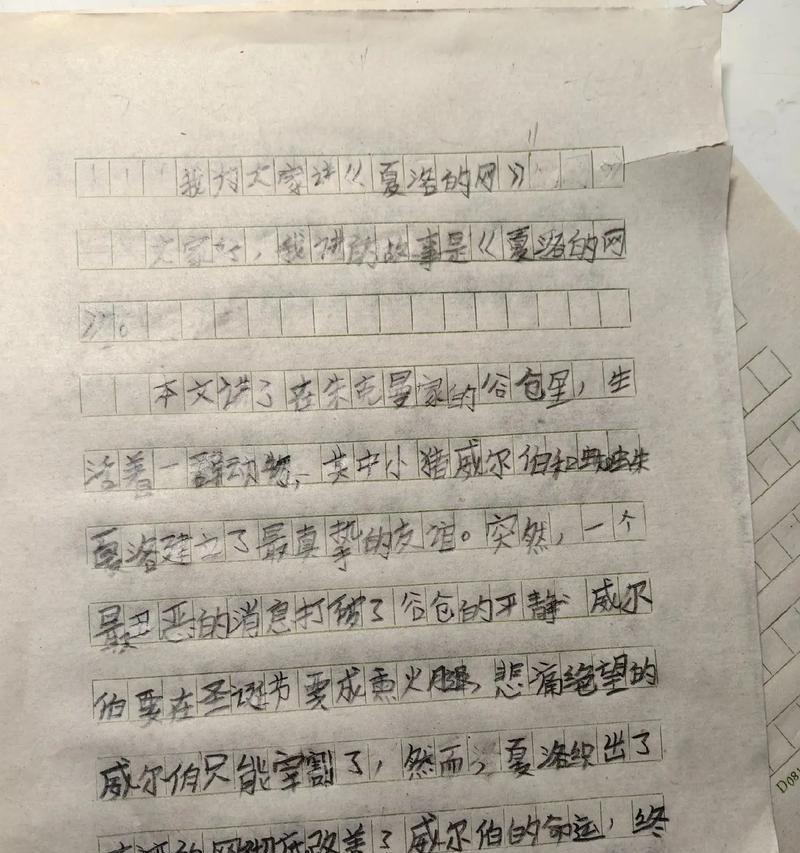 我为大家讲《夏洛的网》
大家好，我讲的故事是《夏洛的网
》。
本文讲了在朱克曼家的谷仓里，生
活着一群动物，其中小猪威尔伯和蜘蛛
夏洛建立了最真挚的友谊。突然，一个
最丑恶的消息打破了谷仓的平静 威尔
伯要在圣诞节要成熏火腿，悲痛绝望的
威尔伯只能宰割了，然而，夏洛织出了
的网彻底改善了威尔伯的命运，终
D081